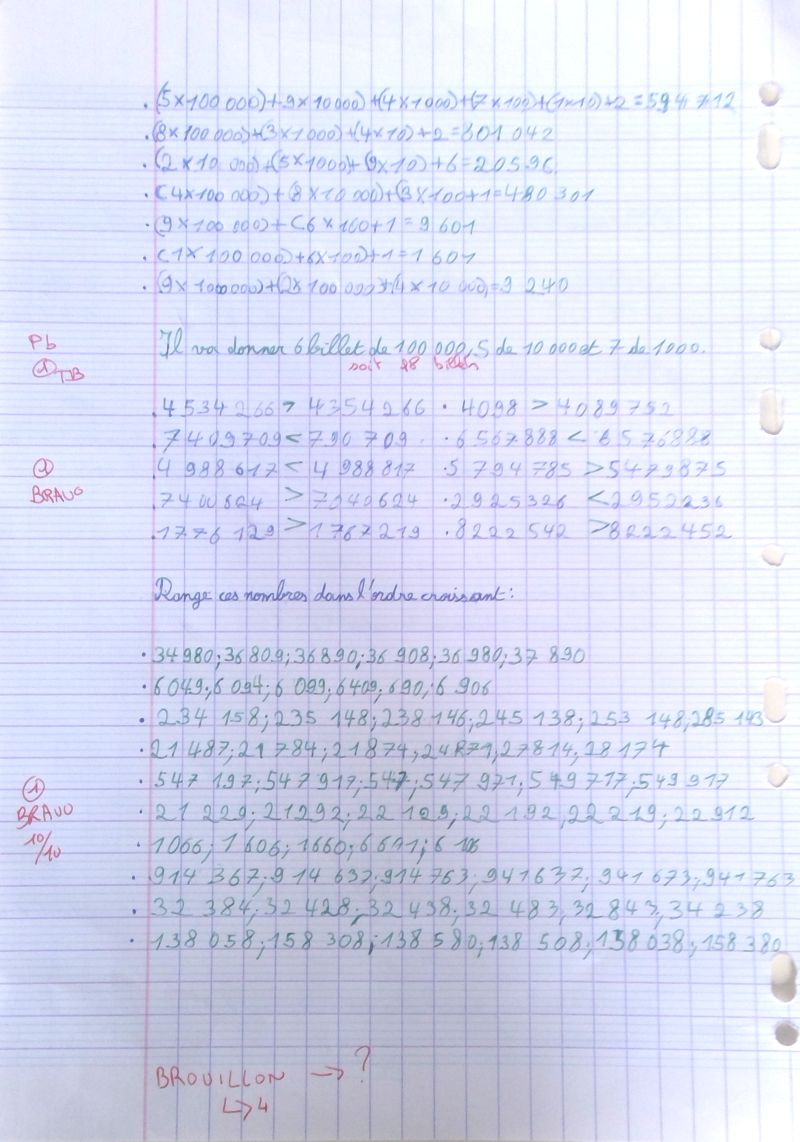 . (5x100 000)+9x10000)+(4x1000)+(7x100)+(1x10)+2=594 712
. (8x100 000)+(3x1000)+(4x10)+2=801 042
. (2x10 000)+(5x1000)+(9x10)+6=20596
. (4x100 000)+(8x10 000)+(3x100+1=480 301
. (9x100 000)+(6x100+1=9 601
. (1x100 000)+6x100)+1=1 601
. (9x100000)+(2x100 000)+(4x10 000)=9 240
Pb Il va donner 6 billet de 100 000, 5 de 10 000 et 7 de 1000.
① TB soit 18 billets
. 4 534 266 > 4354266 . 4098 > 4089752
. 7409709 < 790 709 . 6567888 < 6576888
② . 4 988 617 < 4 988 817 . 5 794 785 > 5479875
BRAVO . 7400624 > 7040624 . 2925326 < 2952236
. 1776 129 > 1767219 . 8222 542 > 8222452
Range ces nombres dans l'ordre croissant:
. 34 980; 36 809; 36 890; 36 908; 36 980; 37 890
. 6049; 6 094; 6 099; 6409; 690; 6 906
. 234 158; 235 148; 238 146; 245 138; 253 148; 285 143
. 21 487; 21 784; 21 874; 24871; 27814; 28 174
① . 547 197; 547 917; 547; 547 971; 549717; 549 917
BRAVO . 21 229; 21292; 22 129; 22 192; 22 219; 22 912
10/10 . 1066; 1 606; 1660; 6 601; 6
. 914 367; 914 637; 914 763; 941637; 941 673; 941 763
. 32 384; 32 428; 32 438; 32 483; 32 843; 34 238
. 138 058; 158 308; 138 580; 138 508; 138 038; 158 380
BROUILLON → ?
↳ 4